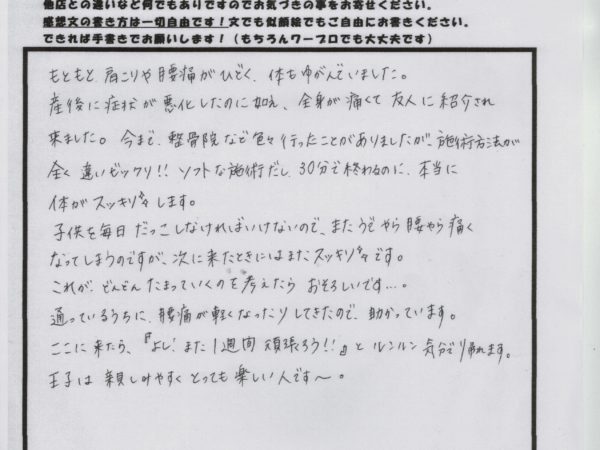 他店との違いなど何でもありですのでお気づきの事をお寄せください。
感想文の書き方は一切自由です！文でも似顔絵でもご自由にお書きください。
できれば手書きでお願いします！（もちろんワープロでも大丈夫です）
もともと肩こりや腰痛がひどく、体もゆがんでいました。
産後に症状が悪化したのに加え、全身が痛くて友人に紹介され
来ました。今まで、整骨院など色々行ったことがありましたが、施術方法が
全く違いビックリ！！ソフトな施術だし、30分で終わるのに、本当に
体がスッキリ〃します。
子供を毎日だっこしなければいけないので、またうでやら腰やら痛く
なってしまうのですが、次に来たときにはまたスッキリ〃です。
これが、どんどんたまっていくのを考えたらおそろしいです…。
通っているうちに、腰痛が軽くなったりしてきたので、助かっています。
ここに来たら、『よし！また1週間頑張ろう！！』とルンルン気分で帰れます。
王子は親しみやすくとっても楽しい人です〜。